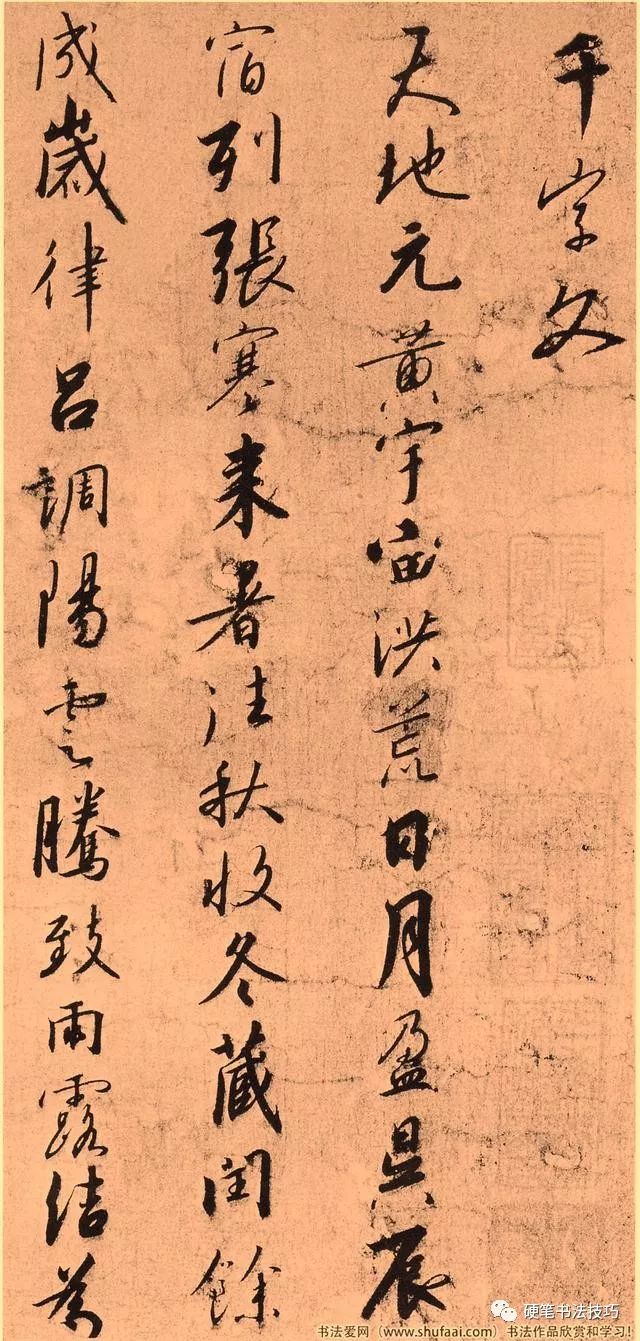 千字文
天地元黄宇宙洪荒日月盈昃辰
宿列張寒来暑往秋收冬藏閏餘
成歲律呂調陽雲騰致雨露結為
硬笔书法技巧
书法爱网（www.shufaai.com）书法作品欣赏和学习！